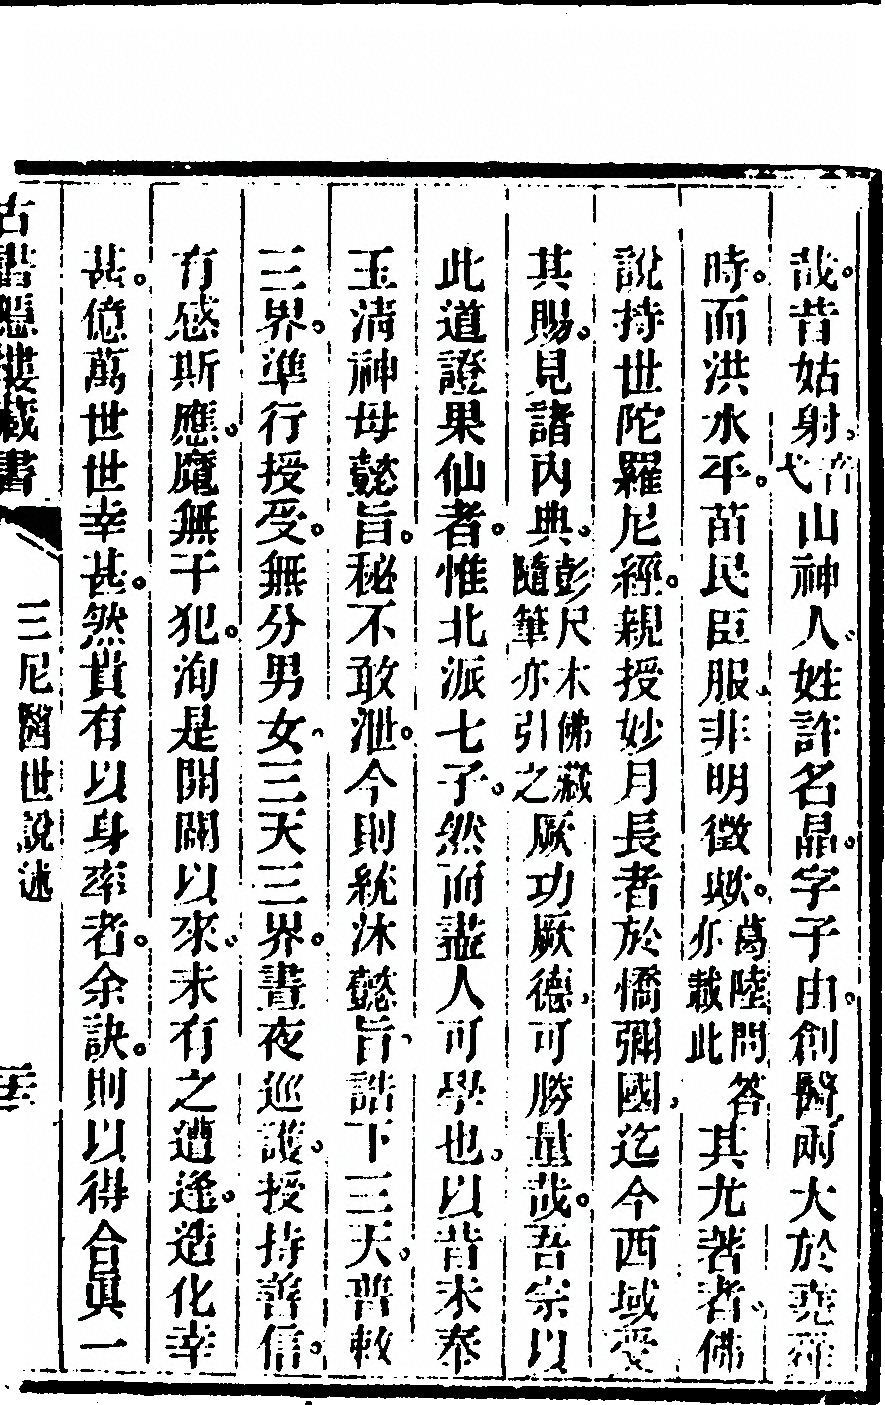 哉。昔姑射。音弋山神人。姓許名晶。字子由。創醫兩大於堯舜
時。而洪水平。苗民臣服。非明徵歟。葛陸問答亦載此其尤著者。佛
說持世陀羅尼經。親授妙月長者於憍彌國。迄今西域受
其賜。見諸內典。彭尺木佛藏隨筆亦引之厥功厥德。可勝量哉。吾宗以
此道證果仙者。惟北派七子。然而盡人可學也。以昔未奉
玉清神母懿旨。秘不敢泄。今則統沐懿旨。誥下三天。普敕
三界。準行授受。無分男女。三天三界。晝夜巡護。授持善信。
有感斯應。魔無干犯。洵是開闢以來。未有之遭逢。造化幸
甚。億萬世世幸甚。然貴有以身率者。余訣。則以得合眞一
古書隱樓藏書 三尼醫世說述